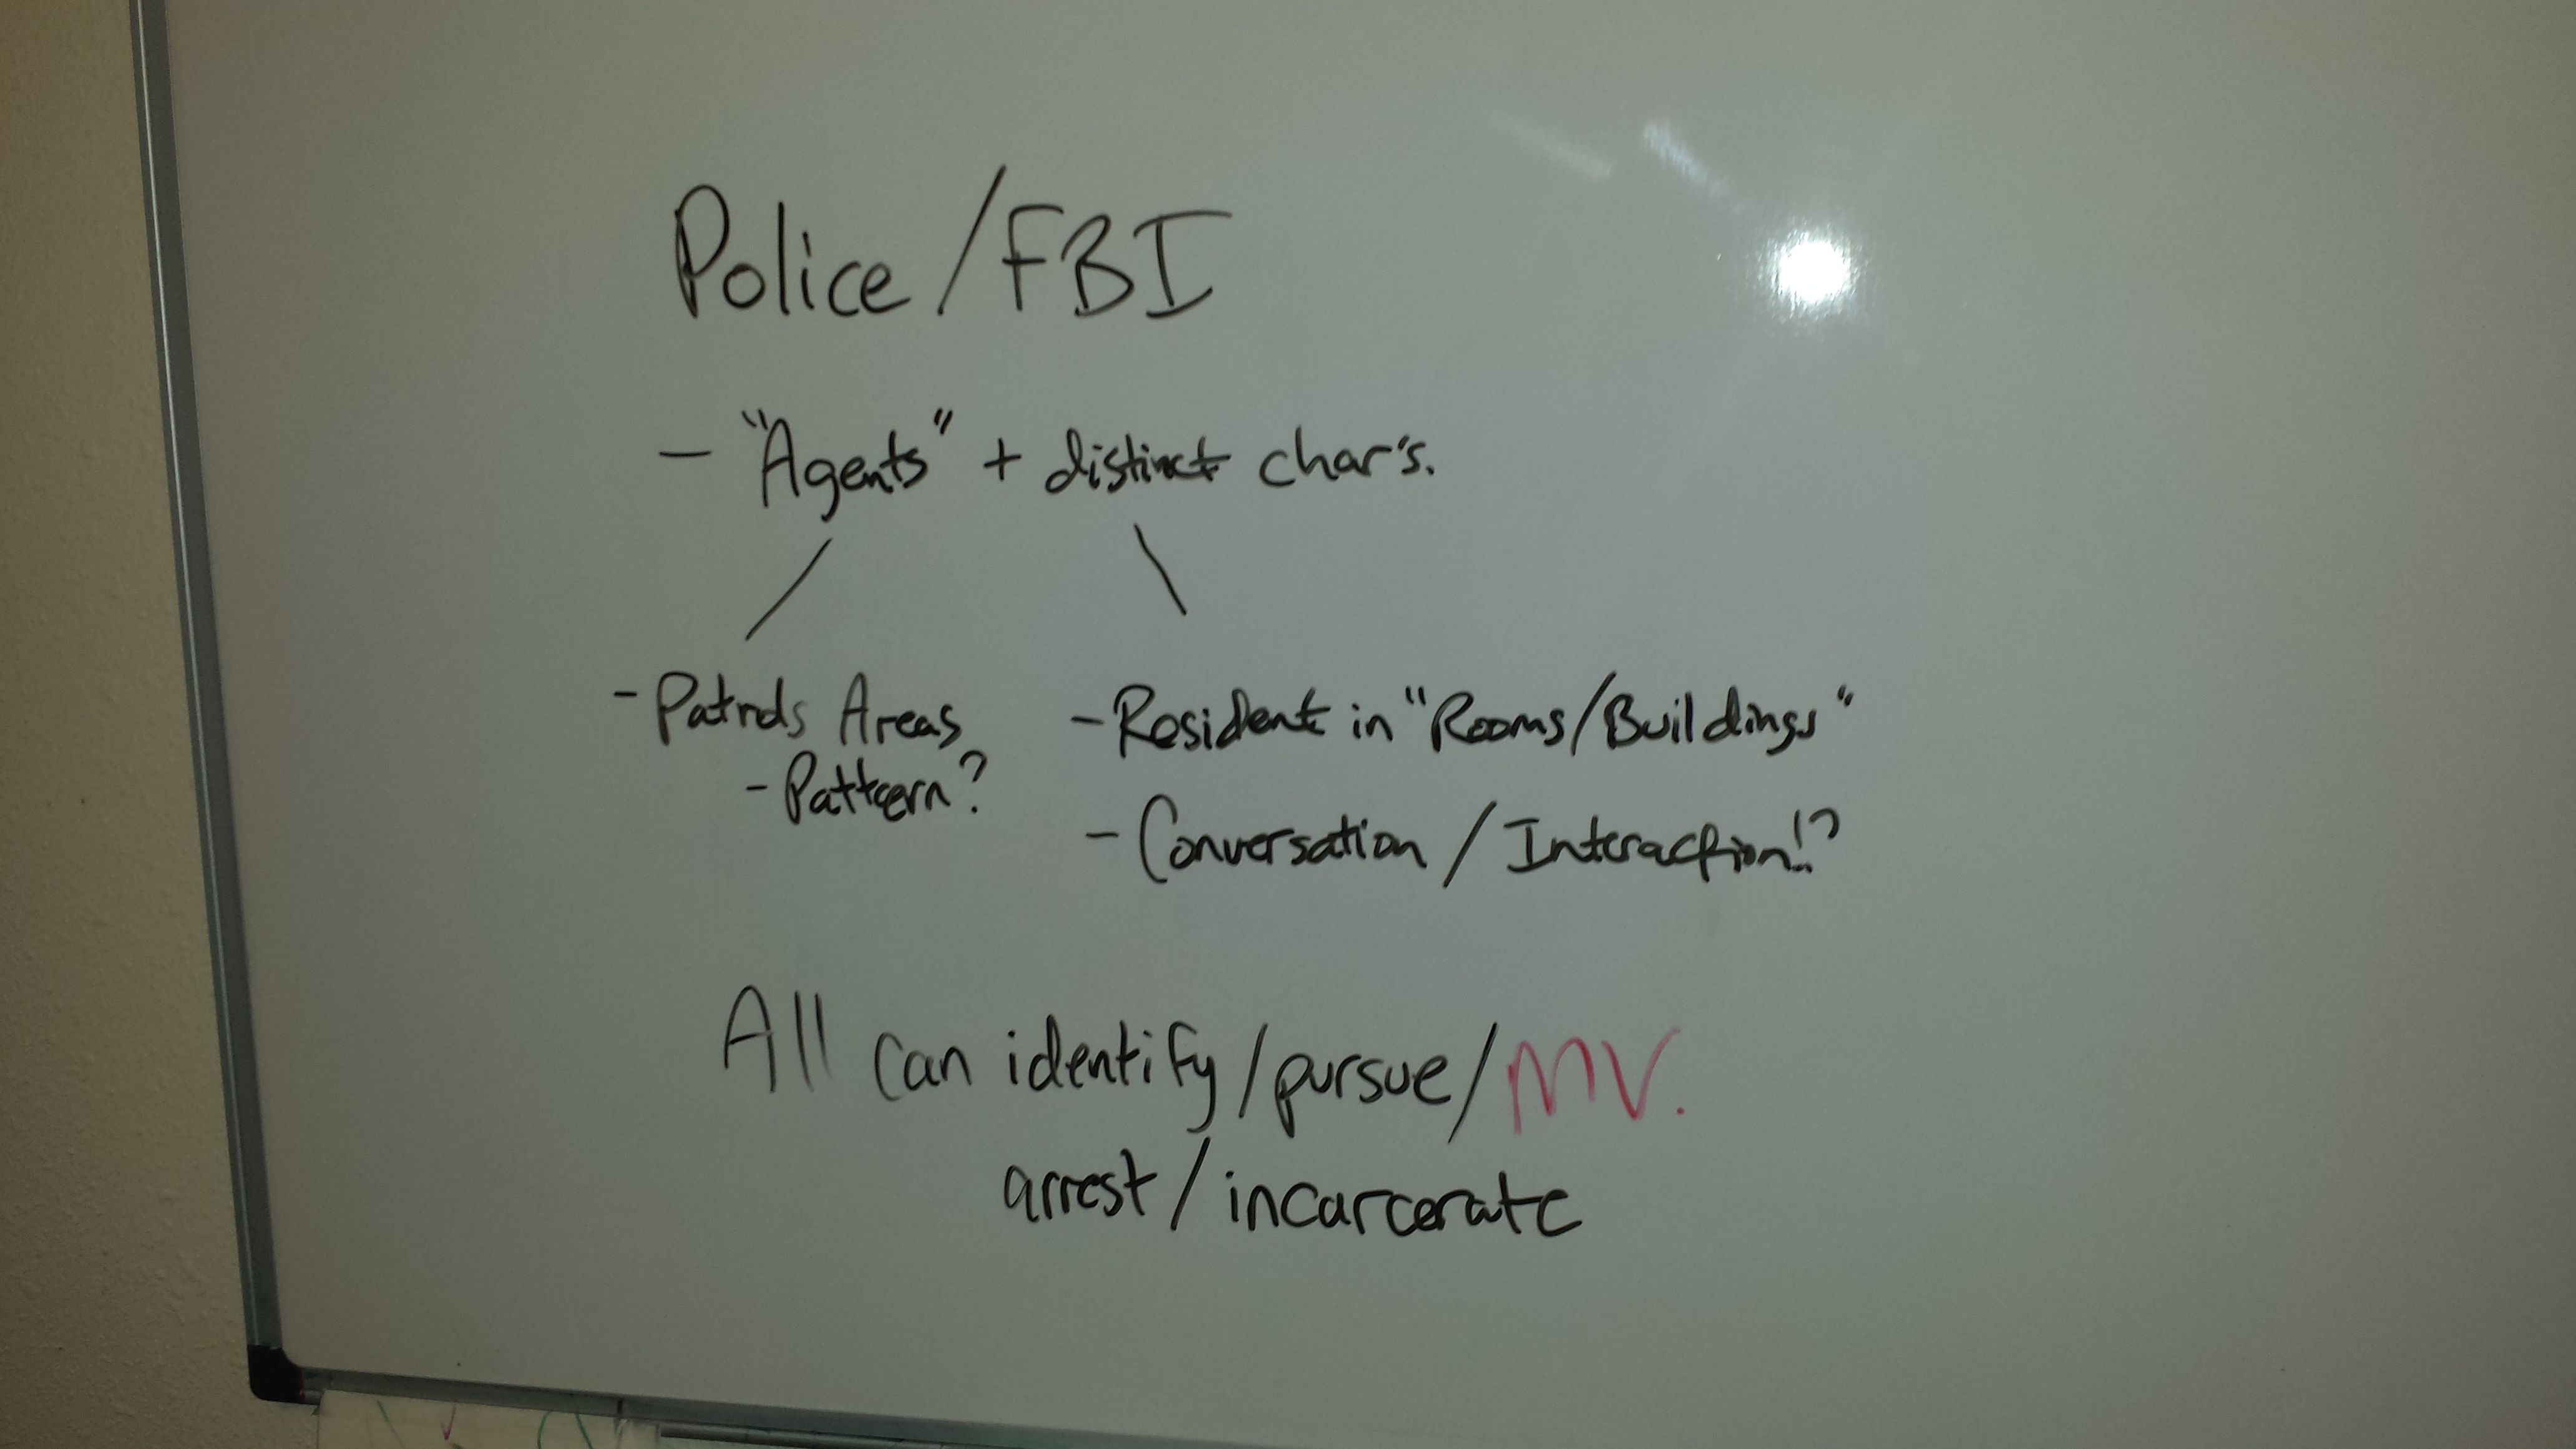 Police/FBI
- "Agents" + distinct char's.
- Patrols Areas
- Pattern?
- Resident in "Rooms/Buildings"
- Conversation / Interaction!?
All can identify/pursue/MV.
arrest/incarcerate